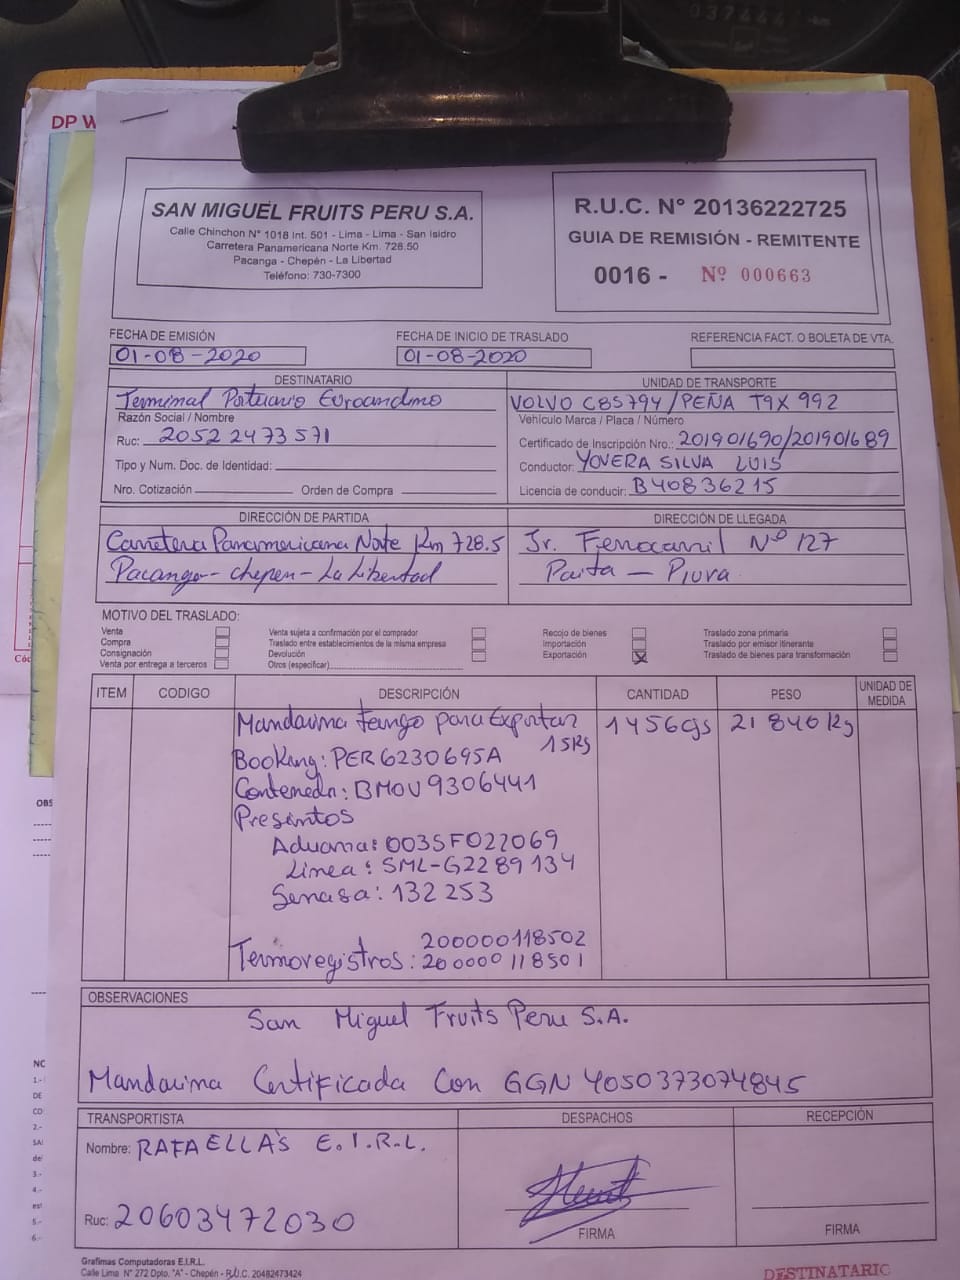 DP W
SAN MIGUEL FRUITS PERU S.A.
Calle Chinchon N° 1018 Int. 501 - Lima - Lima - San Isidro
Carretera Panamericana Norte Km. 728.50
Pacanga - Chepén - La Libertad
Teléfono: 730-7300
R.U.C. N° 20136222725
GUIA DE REMISIÓN - REMITENTE
0016 - Nº 000663
FECHA DE EMISIÓN
01-08-2020
FECHA DE INICIO DE TRASLADO
01-08-2020
REFERENCIA FACT. O BOLETA DE VTA.
DESTINATARIO
Terminal Portuario Euroandino
Razón Social / Nombre
Ruc: 20522473571
Tipo y Num. Doc. de Identidad:
Nro. Cotización Orden de Compra
UNIDAD DE TRANSPORTE
VOLVO C8S794/PEÑA T9X 992
Vehículo Marca / Placa / Número
Certificado de Inscripción Nro.: 201901690/201901689
Conductor: YOVERA SILVA LUIS
Licencia de conducir: B40836215
DIRECCIÓN DE PARTIDA
Carretera Panamericana Norte Km 728.5
Pacanga - Chepen - La Libertad
DIRECCIÓN DE LLEGADA
Jr. Ferrocarril Nº 127
Paita - Piura
MOTIVO DEL TRASLADO:
Venta
Compra
Consignación
Venta por entrega a terceros
Venta sujeta a confirmación por el comprador
Traslado entre establecimientos de la misma empresa
Devolución
Otros (especificar)
Recojo de bienes
Importación
Exportación X
Traslado zona primaria
Traslado por emisor itinerante
Traslado de bienes para transformación
ITEM CODIGO DESCRIPCIÓN CANTIDAD PESO UNIDAD DE MEDIDA
Mandarina Tango para Exportar 1456 Cjs 21840 Kg
15Kg
Booking: PER6230695A
Contenedor: BMOU 9306441
Presintos
Aduana: 003SF022069
Linea: SML-G2289134
Senasa: 132253
200000118502
Termoregistros: 200000118501
OBSERVACIONES
San Miguel Fruits Peru S.A.
Mandarina Certificada Con GGN 4050373074845
TRANSPORTISTA
Nombre: RAFAELLA'S E.I.R.L.
Ruc: 20603472030
DESPACHOS
FIRMA
RECEPCIÓN
FIRMA
Grafimas Computadoras E.I.R.L.
Calle Lima N° 272 Dpto. "A" - Chepén - R.U.C. 20482473424
DESTINATARIO